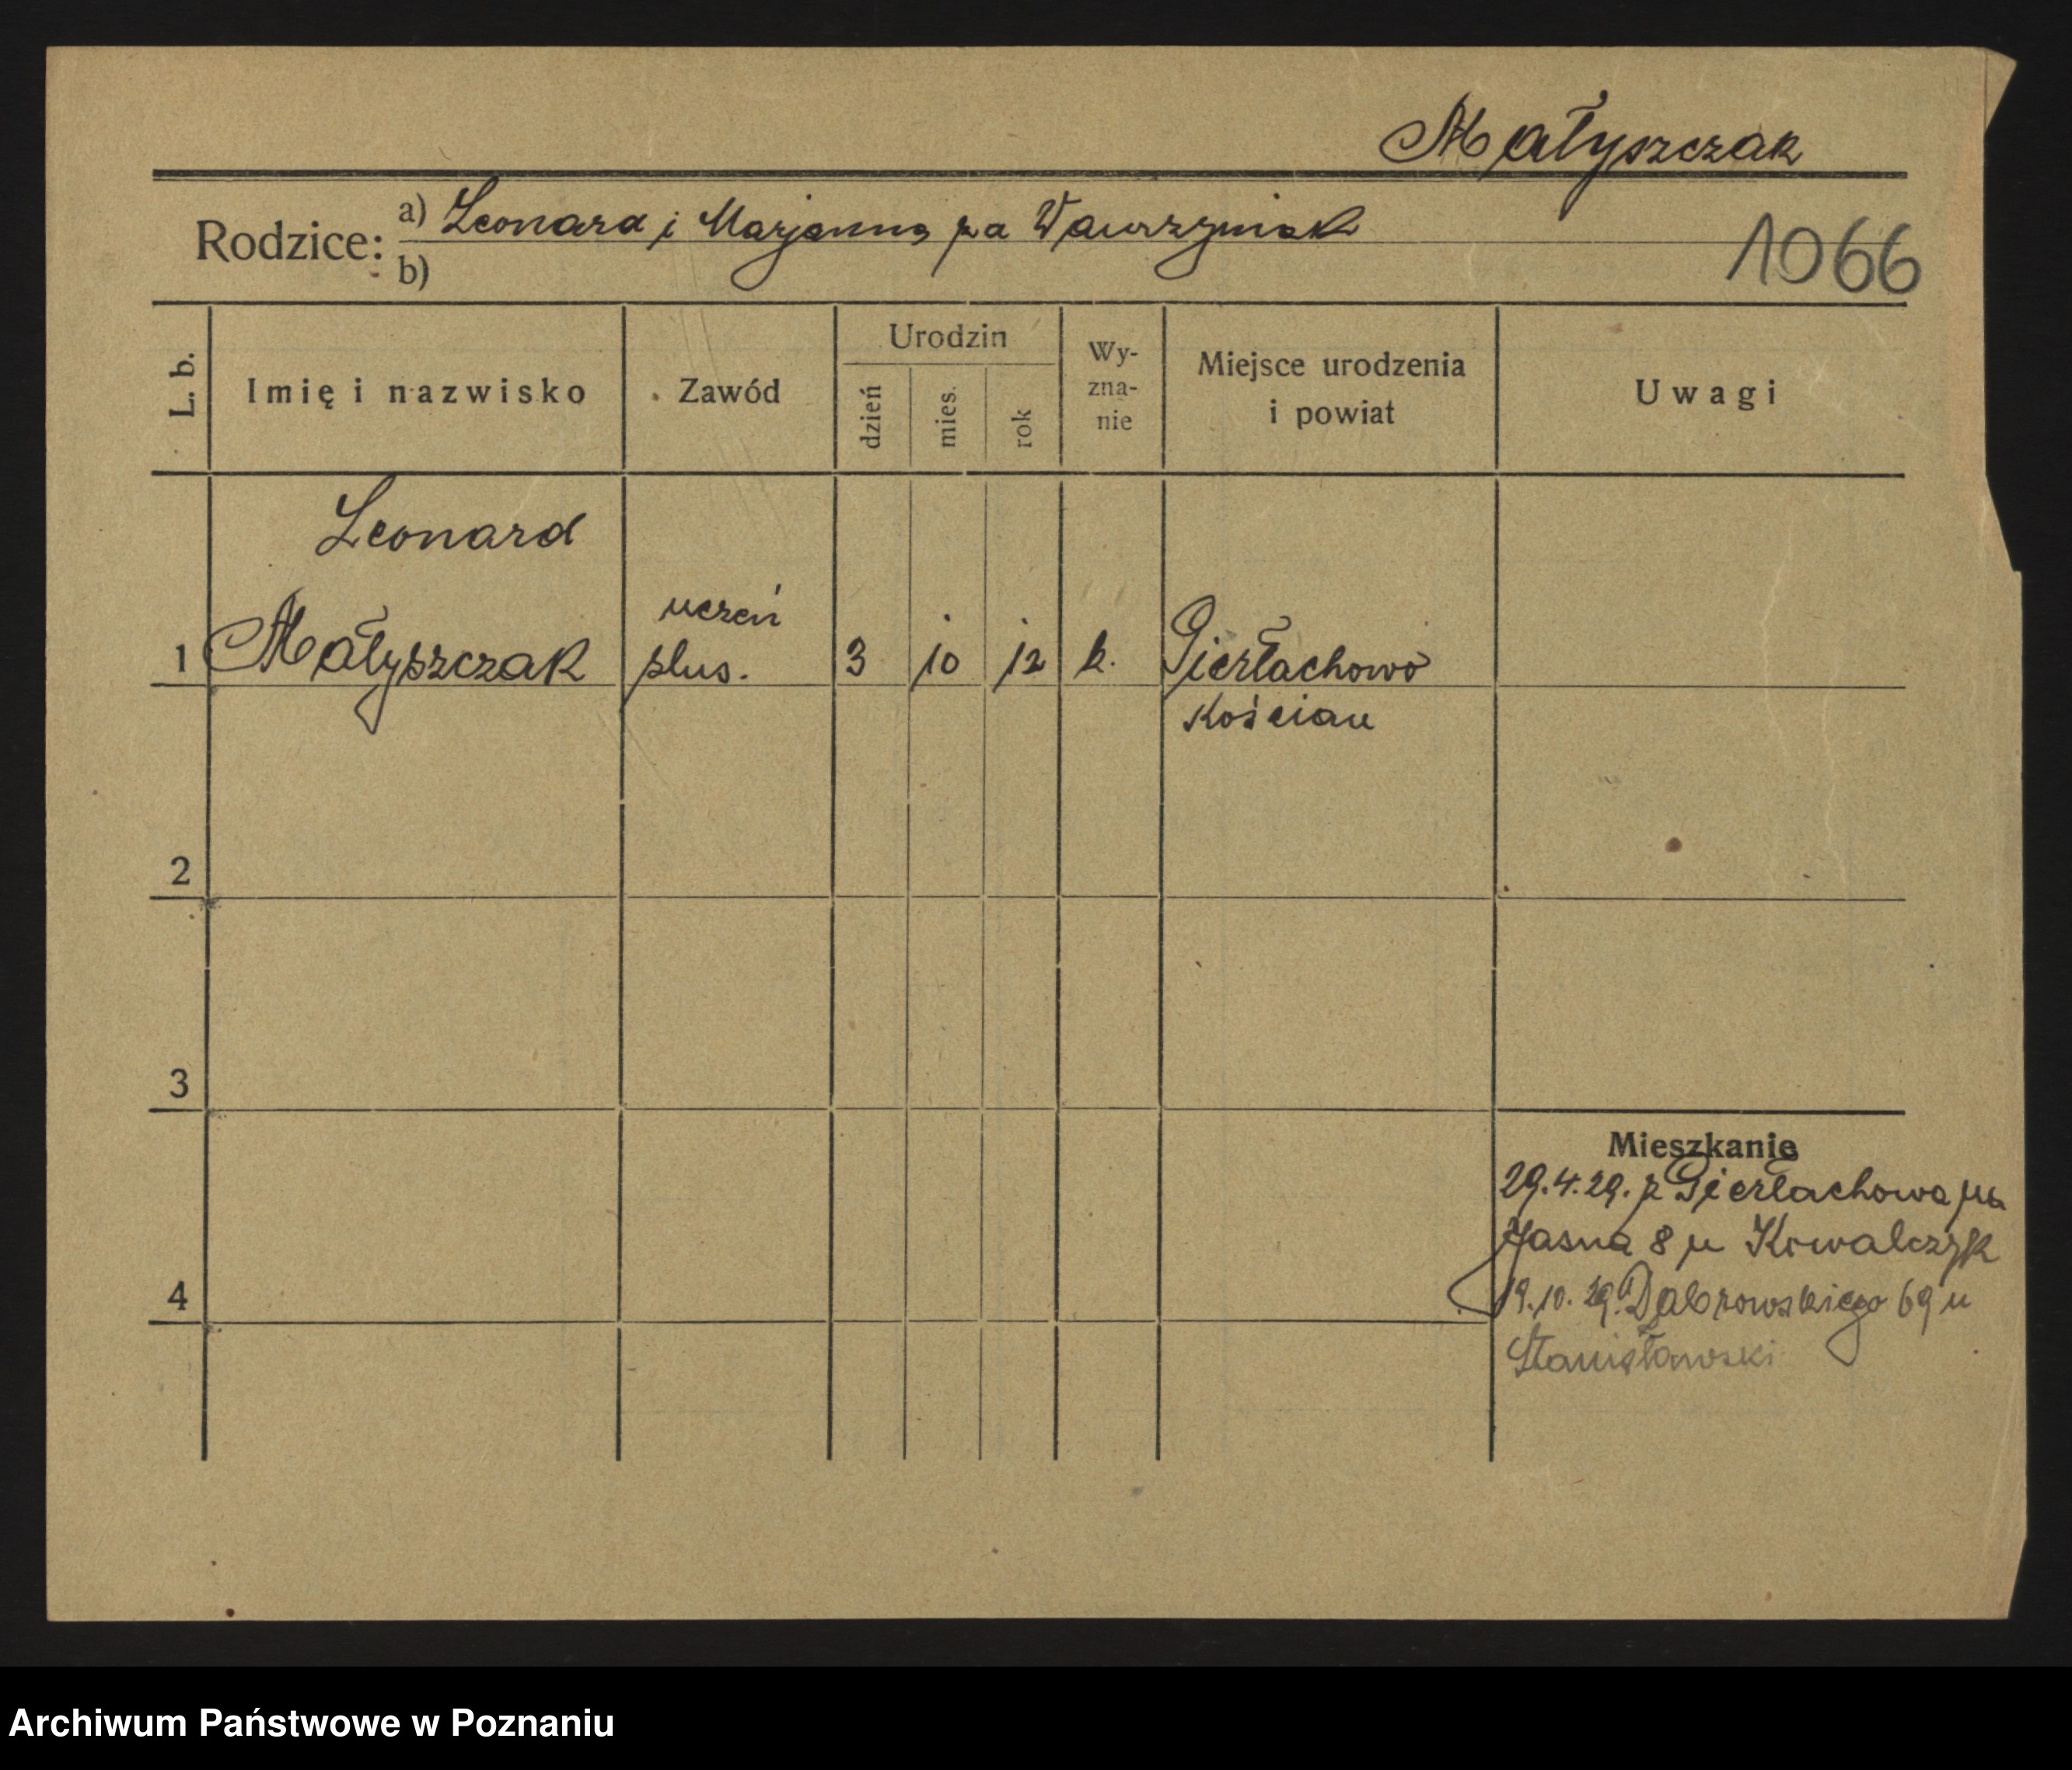 Małyszczak
Rodzice: a) Leonard i Marjanna za Wawrzyniak
b)
1066
L. b.
Imię i nazwisko
Zawód
Urodzin
dzień
mies.
rok
Wy-
zna-
nie
Miejsce urodzenia
i powiat
Uwagi
Leonard
1 Małyszczak
uczeń
ślus.
3 10 12 k. Gierłachowo
Kościan
2
3
4
Mieszkanie
29.4.29. z Gierłachowa
Jasna 8 u Kowalczyk
19.10.29. Dąbrowskiego 69 u
Stanisławski
Archiwum Państwowe w Poznaniu